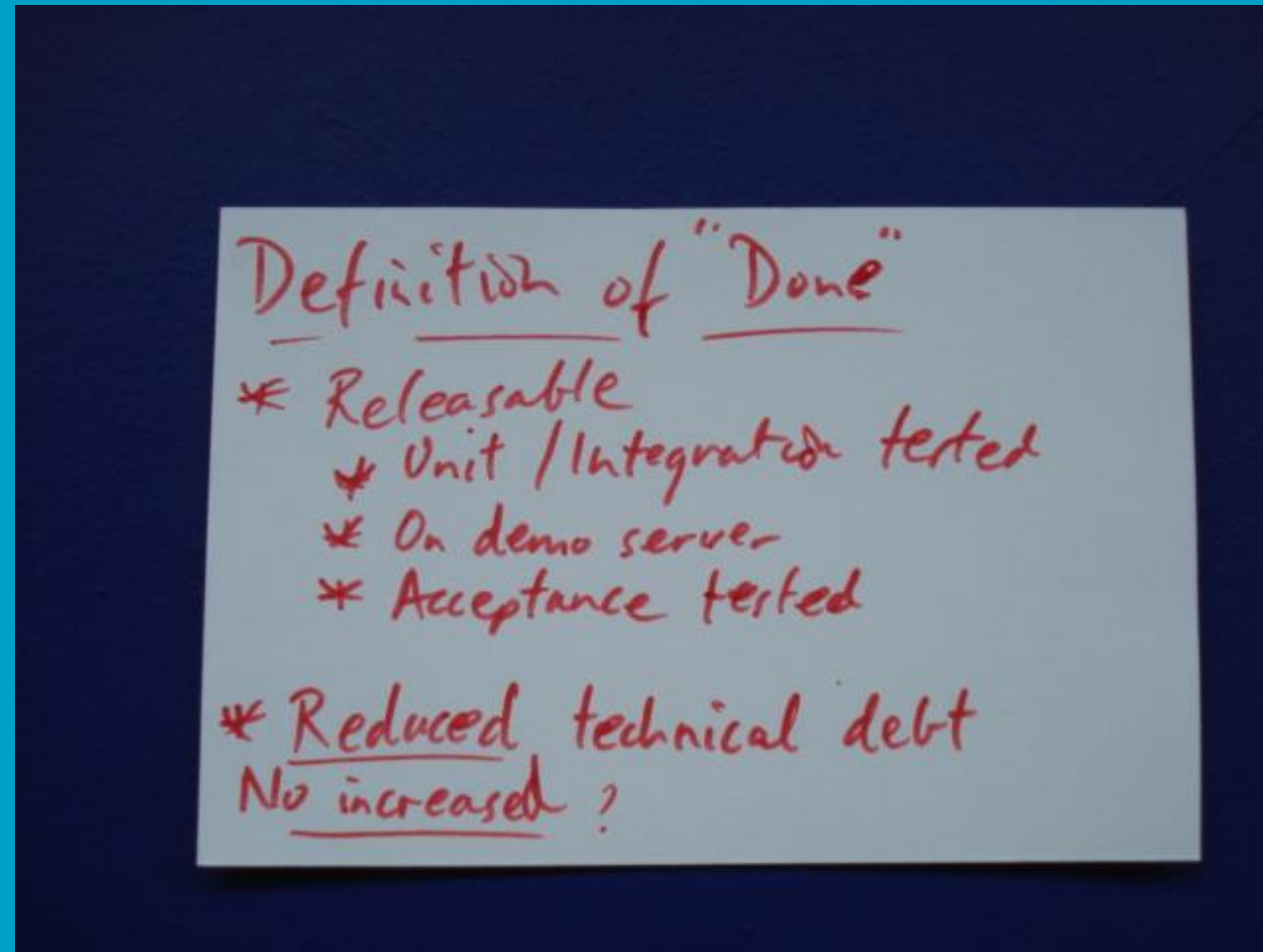 Definition of "Done"
* Releasable
* Unit / Integration tested
* On demo server
* Acceptance tested
* Reduced technical debt
No increased ?